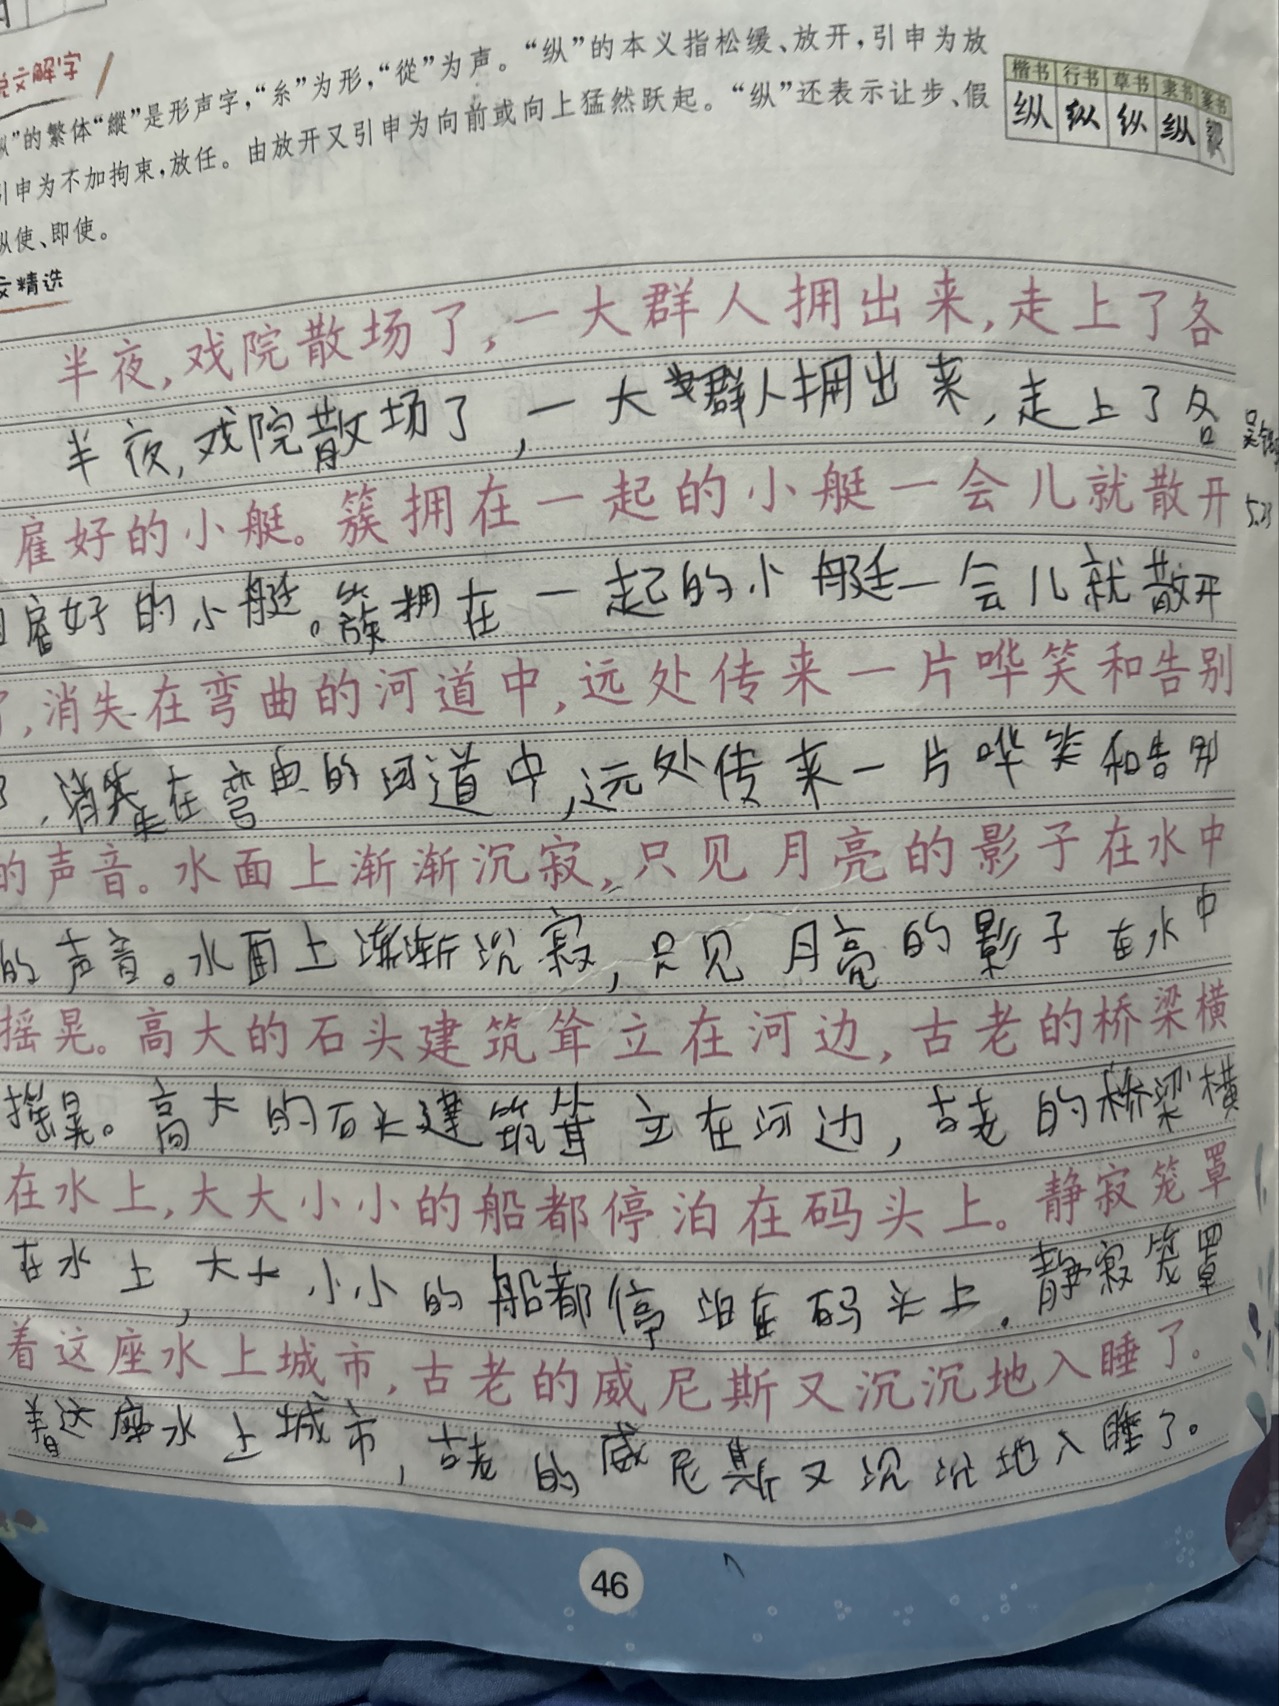 说文解字
纵”的繁体“縱”是形声字，“糸”为形，“從”为声。“纵”的本义指松缓、放开，引申为放
引申为不加拘束，放任。由放开又引申为向前或向上猛然跃起。“纵”还表示让步、假
纵使、即使。
楷书 行书 草书 隶书 篆书
纵 纵 纵 纵
文精选
半夜，戏院散场了，一大群人拥出来，走上了各
半夜，戏院散场了，一大群人拥出来，走上了各
雇好的小艇。簇拥在一起的小艇一会儿就散开
自雇好的小艇。簇拥在一起的小艇一会儿就散开
5.23
了，消失在弯曲的河道中，远处传来一片哗笑和告别
了，消失在弯曲的河道中，远处传来一片哗笑和告别
的声音。水面上渐渐沉寂，只见月亮的影子在水中
的声音。水面上渐渐沉寂，只见月亮的影子在水中
摇晃。高大的石头建筑耸立在河边，古老的桥梁横
摇晃。高大的石头建筑耸立在河边，古老的桥梁横
在水上，大大小小的船都停泊在码头上。静寂笼罩
在水上，大大小小的船都停泊在码头上。静寂笼罩
着这座水上城市，古老的威尼斯又沉沉地入睡了。
着这座水上城市，古老的威尼斯又沉沉地入睡了。
46